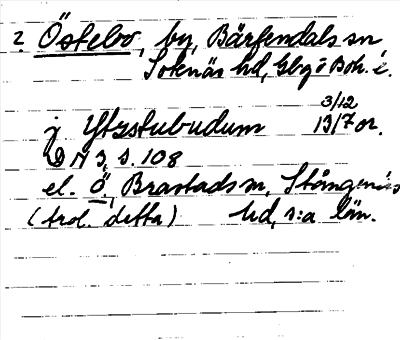 2. Östebo, by, Bärfendals sn
Sotenäs hd, Gbg o Boh. l.
3/12
j Ytzstubudum 1317 or.
DN 3, s. 108
el. Ö, Brastads sn, Stångenäs
(trol. detta) hd, s:a län.